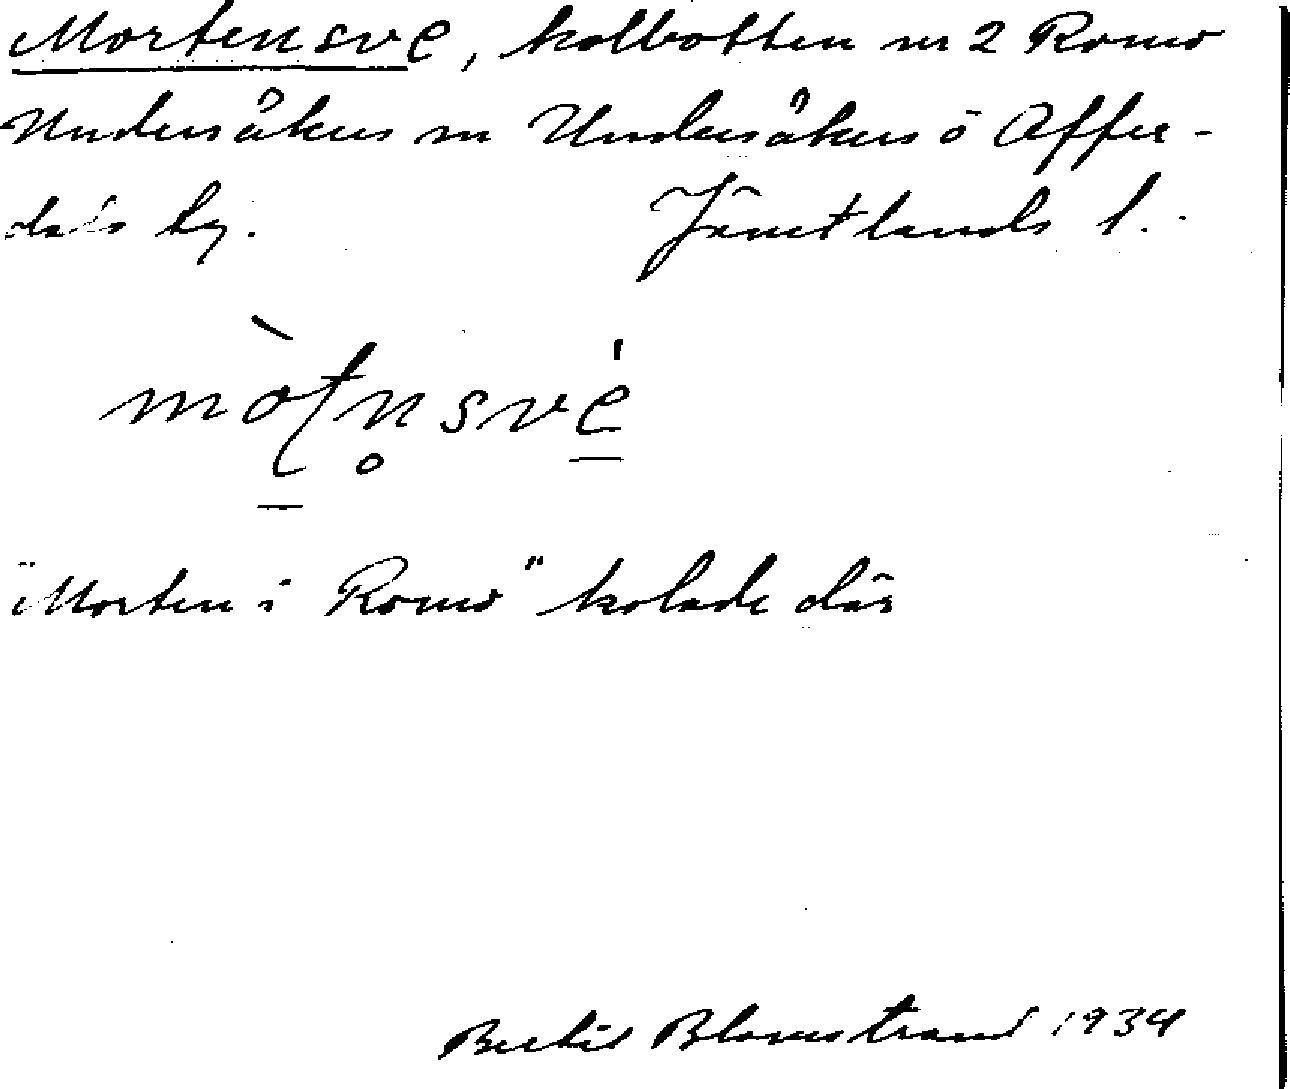 Mortensve, kolbotten nr 2 Romo
Undersåkers sn Undersåkers ö Affer-
dals by. Jämtlands l.
mòʈn̥své
"Morten i Romo" kolade där
Bertil Blomstrand 1934